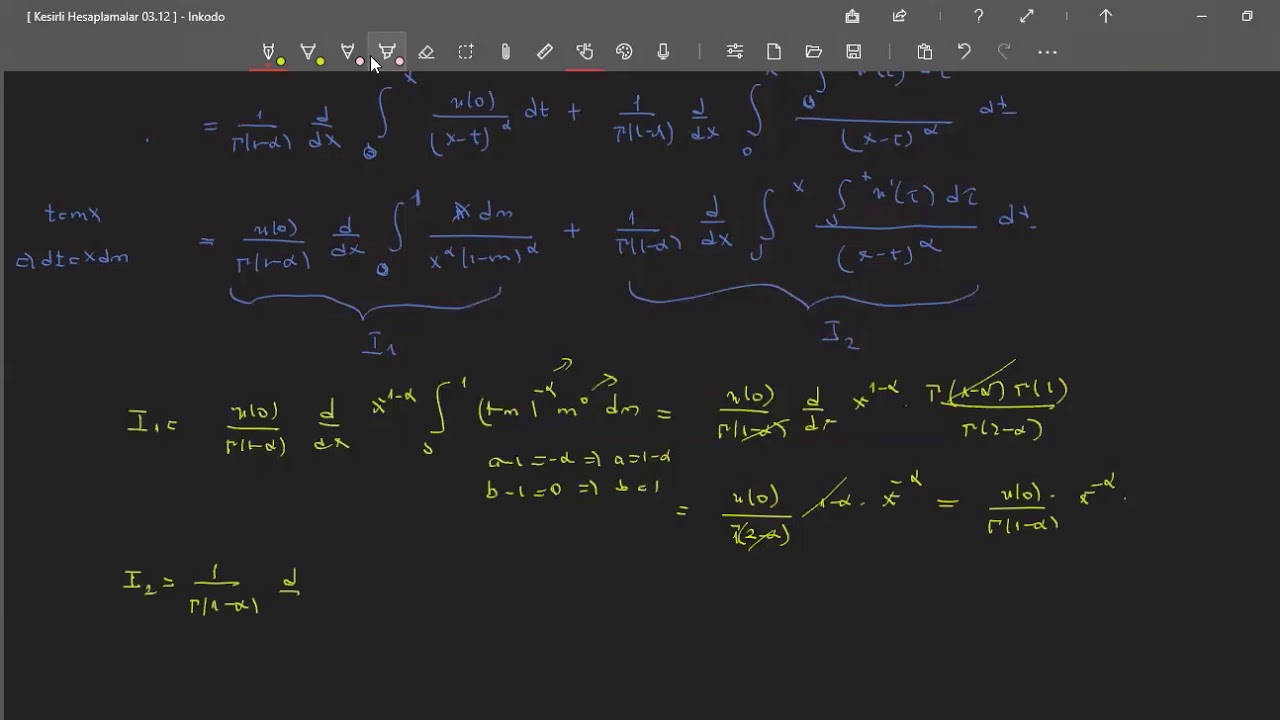 [ Kesirli Hesaplamalar 03.12 ] - Inkodo
= 1/Γ(1-α) d/dx ∫₀ˣ u(0)/(x-t)^α dt + 1/Γ(1-α) d/dx ∫₀ˣ /(x-t)^α dt
t=mx
⇒ dt=xdm
= u(0)/Γ(1-α) d/dx ∫₀¹ x dm/x^α(1-m)^α + 1/Γ(1-α) d/dx ∫₀ˣ ∫₀ᵗ u'(τ) dτ/(x-t)^α dt
I₁
I₂
I₁= u(0)/Γ(1-α) d/dx x^{1-α} ∫₀¹ (1-m)^{-α} m⁰ dm = u(0)/Γ(1-α) d/dx x^{1-α} . Γ(1-α) Γ(1)/Γ(2-α)
a-1=-α ⇒ a=1-α
b-1=0 ⇒ b=1
= u(0)/Γ(2-α) 1-α . x^{-α} = u(0)/Γ(1-α) . x^{-α} .
I₂ = 1/Γ(1-α) d